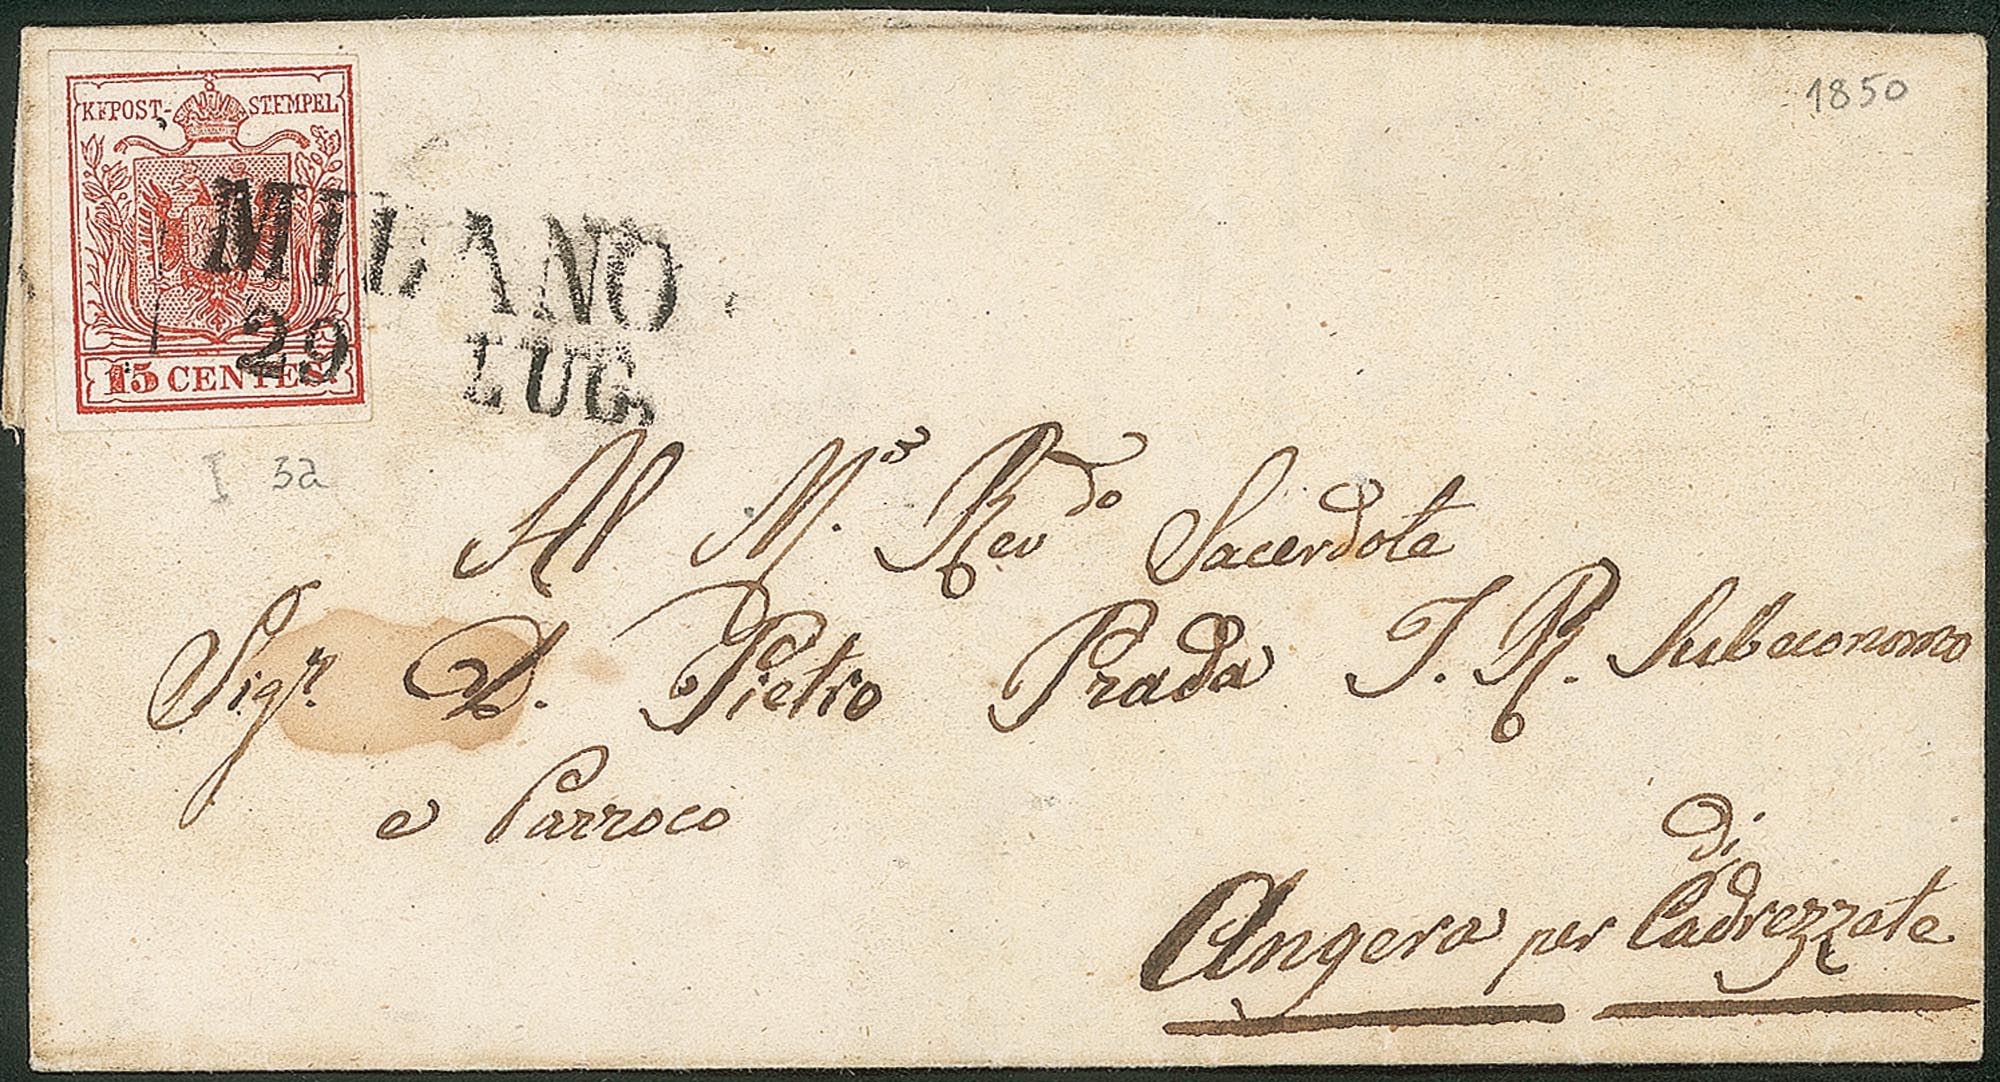 1850
KK POST-STEMPEL
15 CENTES.
MILANO
29 LUG.
I 3a
Al M.º Rev.do Sacerdote
Sigr. D. Pietro Prada I. R. Subeconomo
e Parroco
di
Angera per Cadrezzate